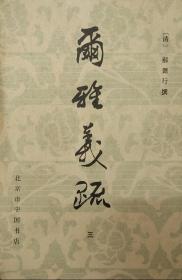 〔清〕郝懿行撰
爾雅義疏
三
北京市中国书店